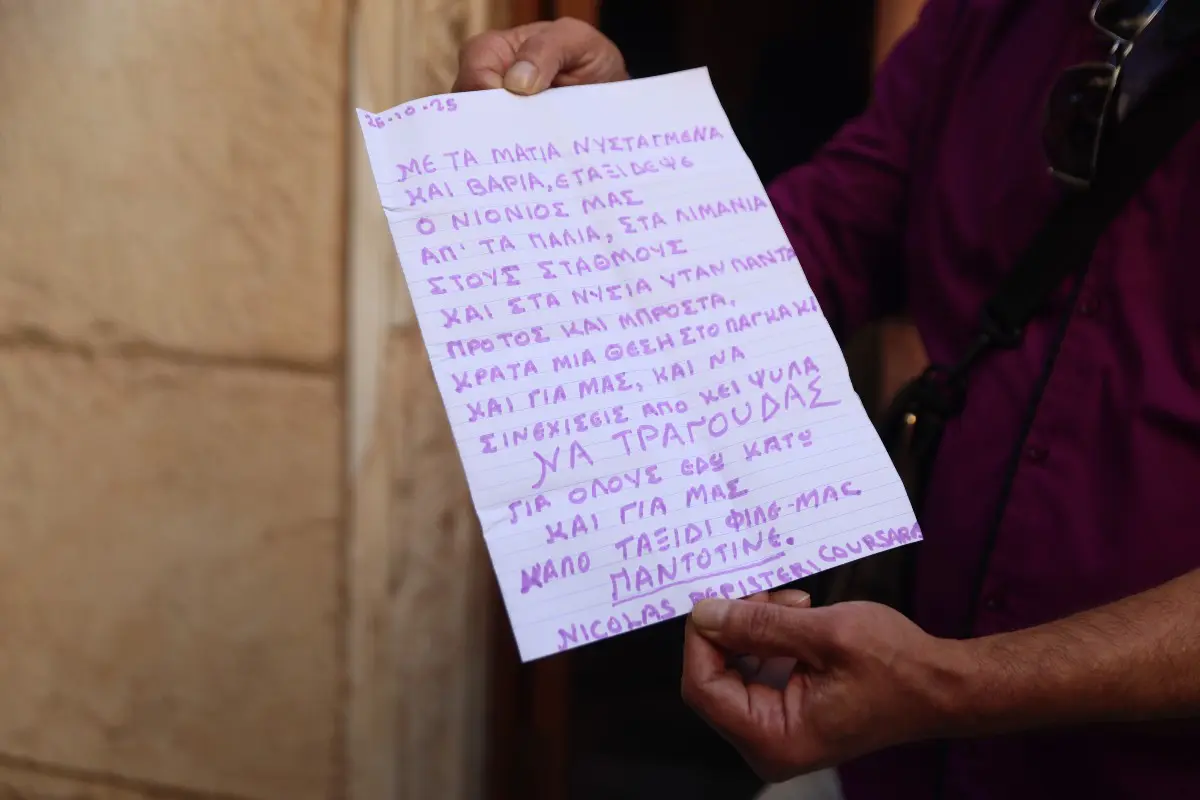 26.10.25
ΜΕ ΤΑ ΜΑΤΙΑ ΝΥΣΤΑΓΜΕΝΑ
ΚΑΙ ΒΑΡΙΑ, ΕΤΑΞΙΔΕΨΕ
Ο ΝΙΟΝΙΟΣ ΜΑΣ
ΑΠ' ΤΑ ΠΑΛΙΑ, ΣΤΑ ΛΙΜΑΝΙΑ
ΣΤΟΥΣ ΣΤΑΘΜΟΥΣ
ΚΑΙ ΣΤΑ ΝΥΣΙΑ ΥΤΑΝ ΠΑΝΤΑ
ΠΡΟΤΟΣ ΚΑΙ ΜΠΡΟΣΤΑ.
ΚΡΑΤΑ ΜΙΑ ΘΕΣΗ ΣΤΟ ΠΑΓΚΑΚΙ
ΚΑΙ ΓΙΑ ΜΑΣ, ΚΑΙ ΝΑ
ΣΙΝΕΧΙΣΕΙΣ ΑΠΟ ΚΕΙ ΨΥΛΑ
ΝΑ ΤΡΑΓΟΥΔΑΣ
ΓΙΑ ΟΛΟΥΣ ΕΔΩ ΚΑΤΩ
ΚΑΙ ΓΙΑ ΜΑΣ
ΚΑΛΟ ΤΑΞΙΔΙ ΦΙΛΕ-ΜΑΣ
ΠΑΝΤΟΤΙΝΕ.
NICOLAS PEPISTERI